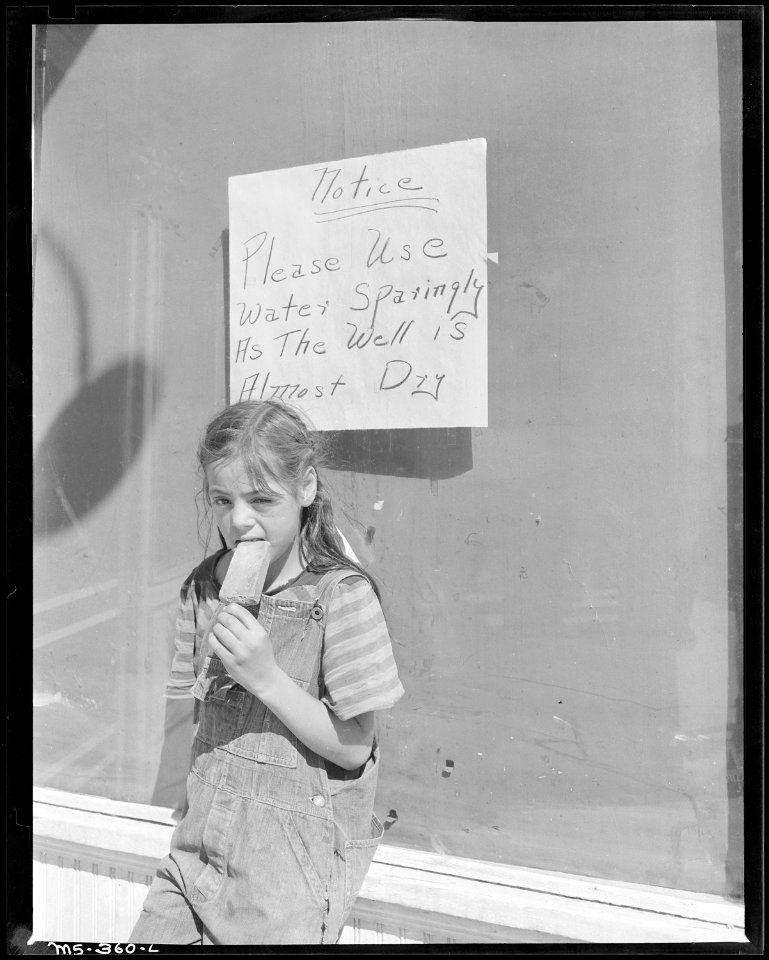 Notice
Please Use
Water Sparingly
As The Well is
Almost Dry
MS-360-L